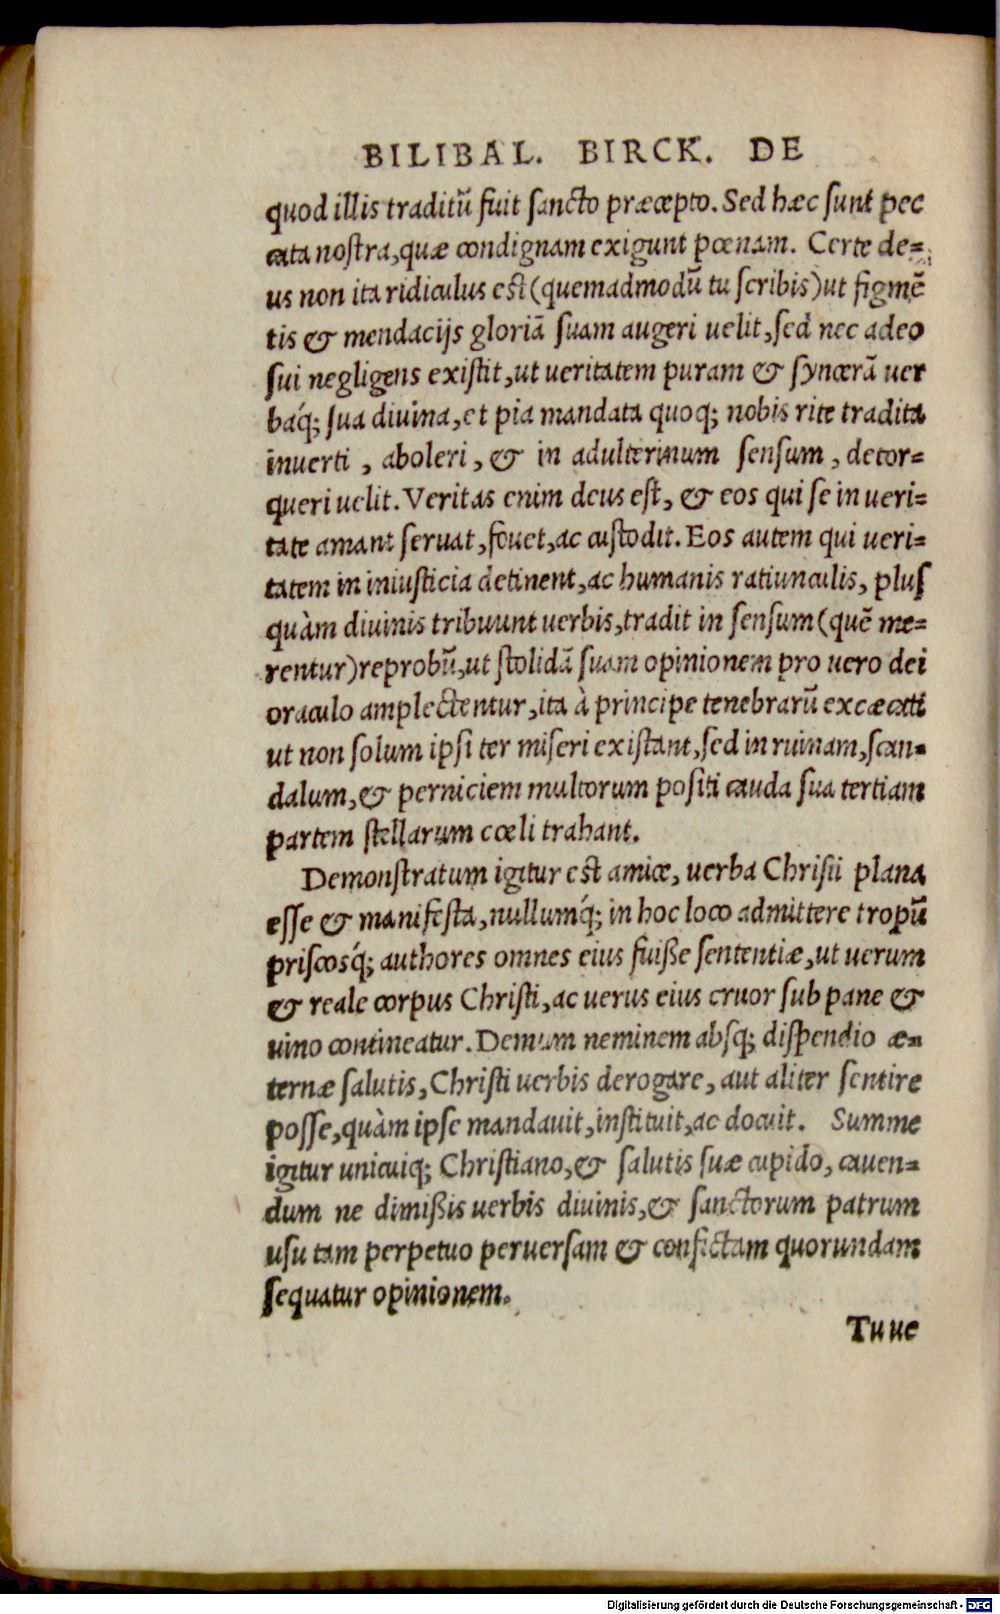 BILIBAL. BIRCK. DE
quod illis traditũ fuit sancto præcepto. Sed hæc sunt pec
cata nostra, quæ condignam exigunt pœnam. Certe de=
us non ita ridiculus est (quemadmodũ tu scribis) ut figmẽ
tis & mendacijs gloriã suam augeri uelit, sed nec adeo
sui negligens existit, ut ueritatem puram & syncerã uer
baq́; sua diuina, et pia mandata quoq; nobis rite tradita
inuerti, aboleri, & in adulterinum sensum, detor=
queri uelit. Veritas enim deus est, & eos qui se in ueri=
tate amant seruat, fouet, ac custodit. Eos autem qui ueri=
tatem in iniusticia detinent, ac humanis ratiunculis, plus
quàm diuinis tribuunt uerbis, tradit in sensum (quẽ me=
rentur) reprobũ, ut stolidã suam opinionem pro uero dei
oraculo amplectentur, ita à principe tenebrarũ excæcati
ut non solum ipsi ter miseri existant, sed in ruinam, scan=
dalum, & perniciem multorum positi cauda sua tertiam
partem stellarum cœli trahant.
Demonstratum igitur est amice, uerba Christi plana
esse & manifesta, nullumq́; in hoc loco admittere tropũ
priscosq́; authores omnes eius fuiße sententiæ, ut uerum
& reale corpus Christi, ac uerus eius cruor sub pane &
uino contineatur. Demum neminem absq; dispendio æ=
ternæ salutis, Christi uerbis derogare, aut aliter sentire
posse, quàm ipse mandauit, instituit, ac docuit. Summe
igitur unicuiq; Christiano, & salutis suæ cupido, cauen=
dum ne dimißis uerbis diuinis, & sanctorum patrum
usu tam perpetuo peruersam & confictam quorundam
sequatur opinionem.
Tu ue
Digitalisierung gefördert durch die Deutsche Forschungsgemeinschaft - DFG